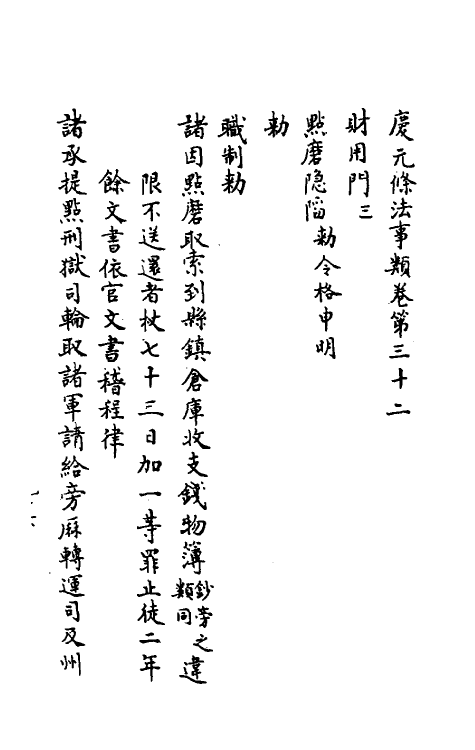 慶元條法事類卷第三十二
財用門三
點磨隱陷 勅令格申明
勅
職制勅
諸因點磨取索到縣鎮倉庫收支錢物簿鈔旁之類同違
限不送還者杖七十三日加一等罪止徒二年
餘文書依官文書稽程律
諸承提點刑獄司輪取諸軍請給旁厤轉運司及州